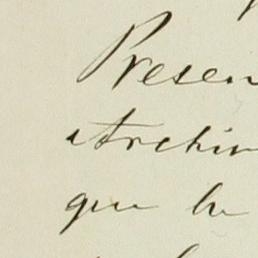 Presen
Archin
que he